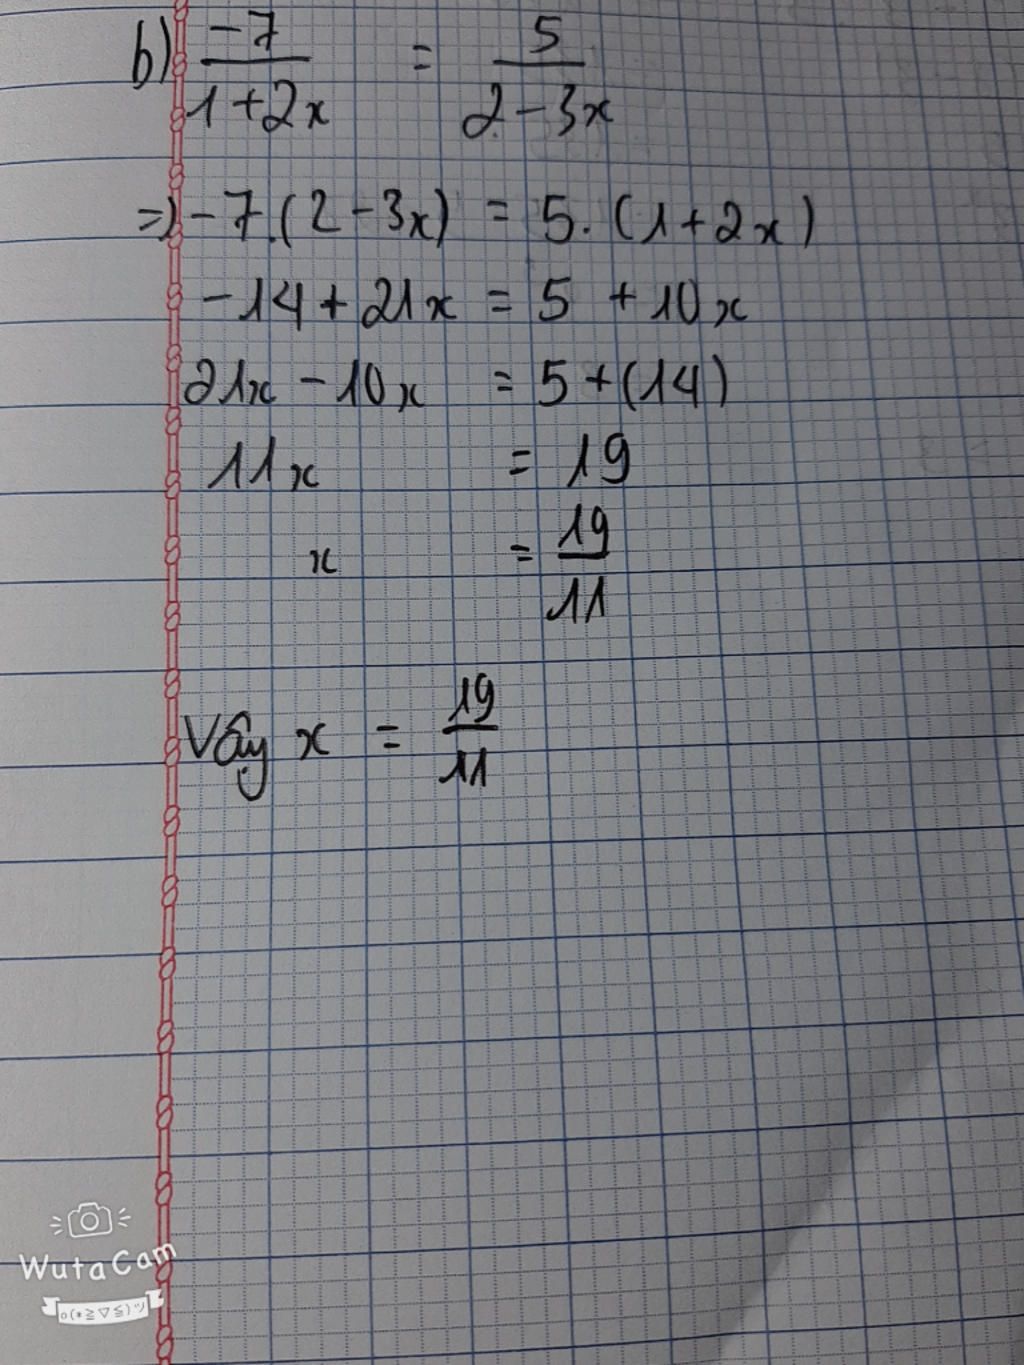 b) -7/1+2x = 5/2-3x
=> -7.(2-3x) = 5.(1+2x)
-14+21x = 5 +10x
21x -10x = 5+(14)
11x = 19
x = 19/11
Vậy x = 19/11
WutaCam
o(*≧▽≦)ツ